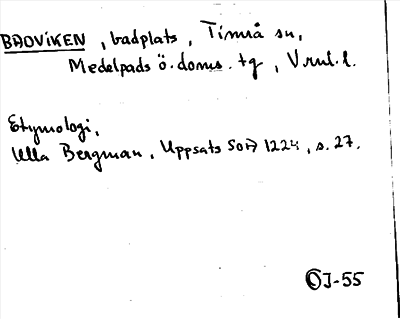 BADVIKEN, badplats, Timrå sn,
Medelpads ö. doms. tg, V.nrl. l.
Etymologi,
Ulla Bergman, Uppsats SOFI 1224, s. 27.
OJ-55